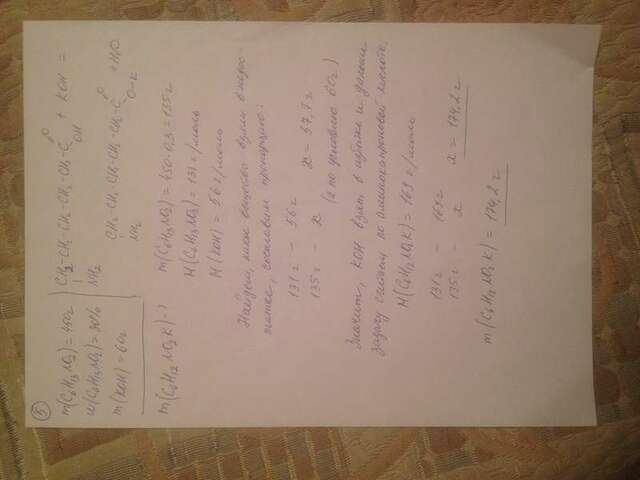 5
m(C6H13NO2) = 450г
w(C6H13NO2) = 30%
m(KOH) = 60г
m(C6H12NO2K) - ?
CH2-CH2-CH2-CH2-CH2-C O OH + KOH =
NH2
CH2-CH2-CH2-CH2-CH2-C O O-K + H2O
NH2
m(C6H13NO2) = 450·0,3 = 135г
M(C6H13NO2) = 131 г/моль
M(KOH) = 56 г/моль
Найдем, какое вещество взяли в недос-
татке, составим пропорцию:
131г - 56г
135г - x x = 57,7г
(а по условию 60г)
Значит, KOH взят в избытке и дальше
задачу считаем по аминокапроновой кислоте.
M(C6H12NO2K) = 169 г/моль
131г - 169г
135г - x x = 174,2г
m(C6H12NO2K) = 174,2г